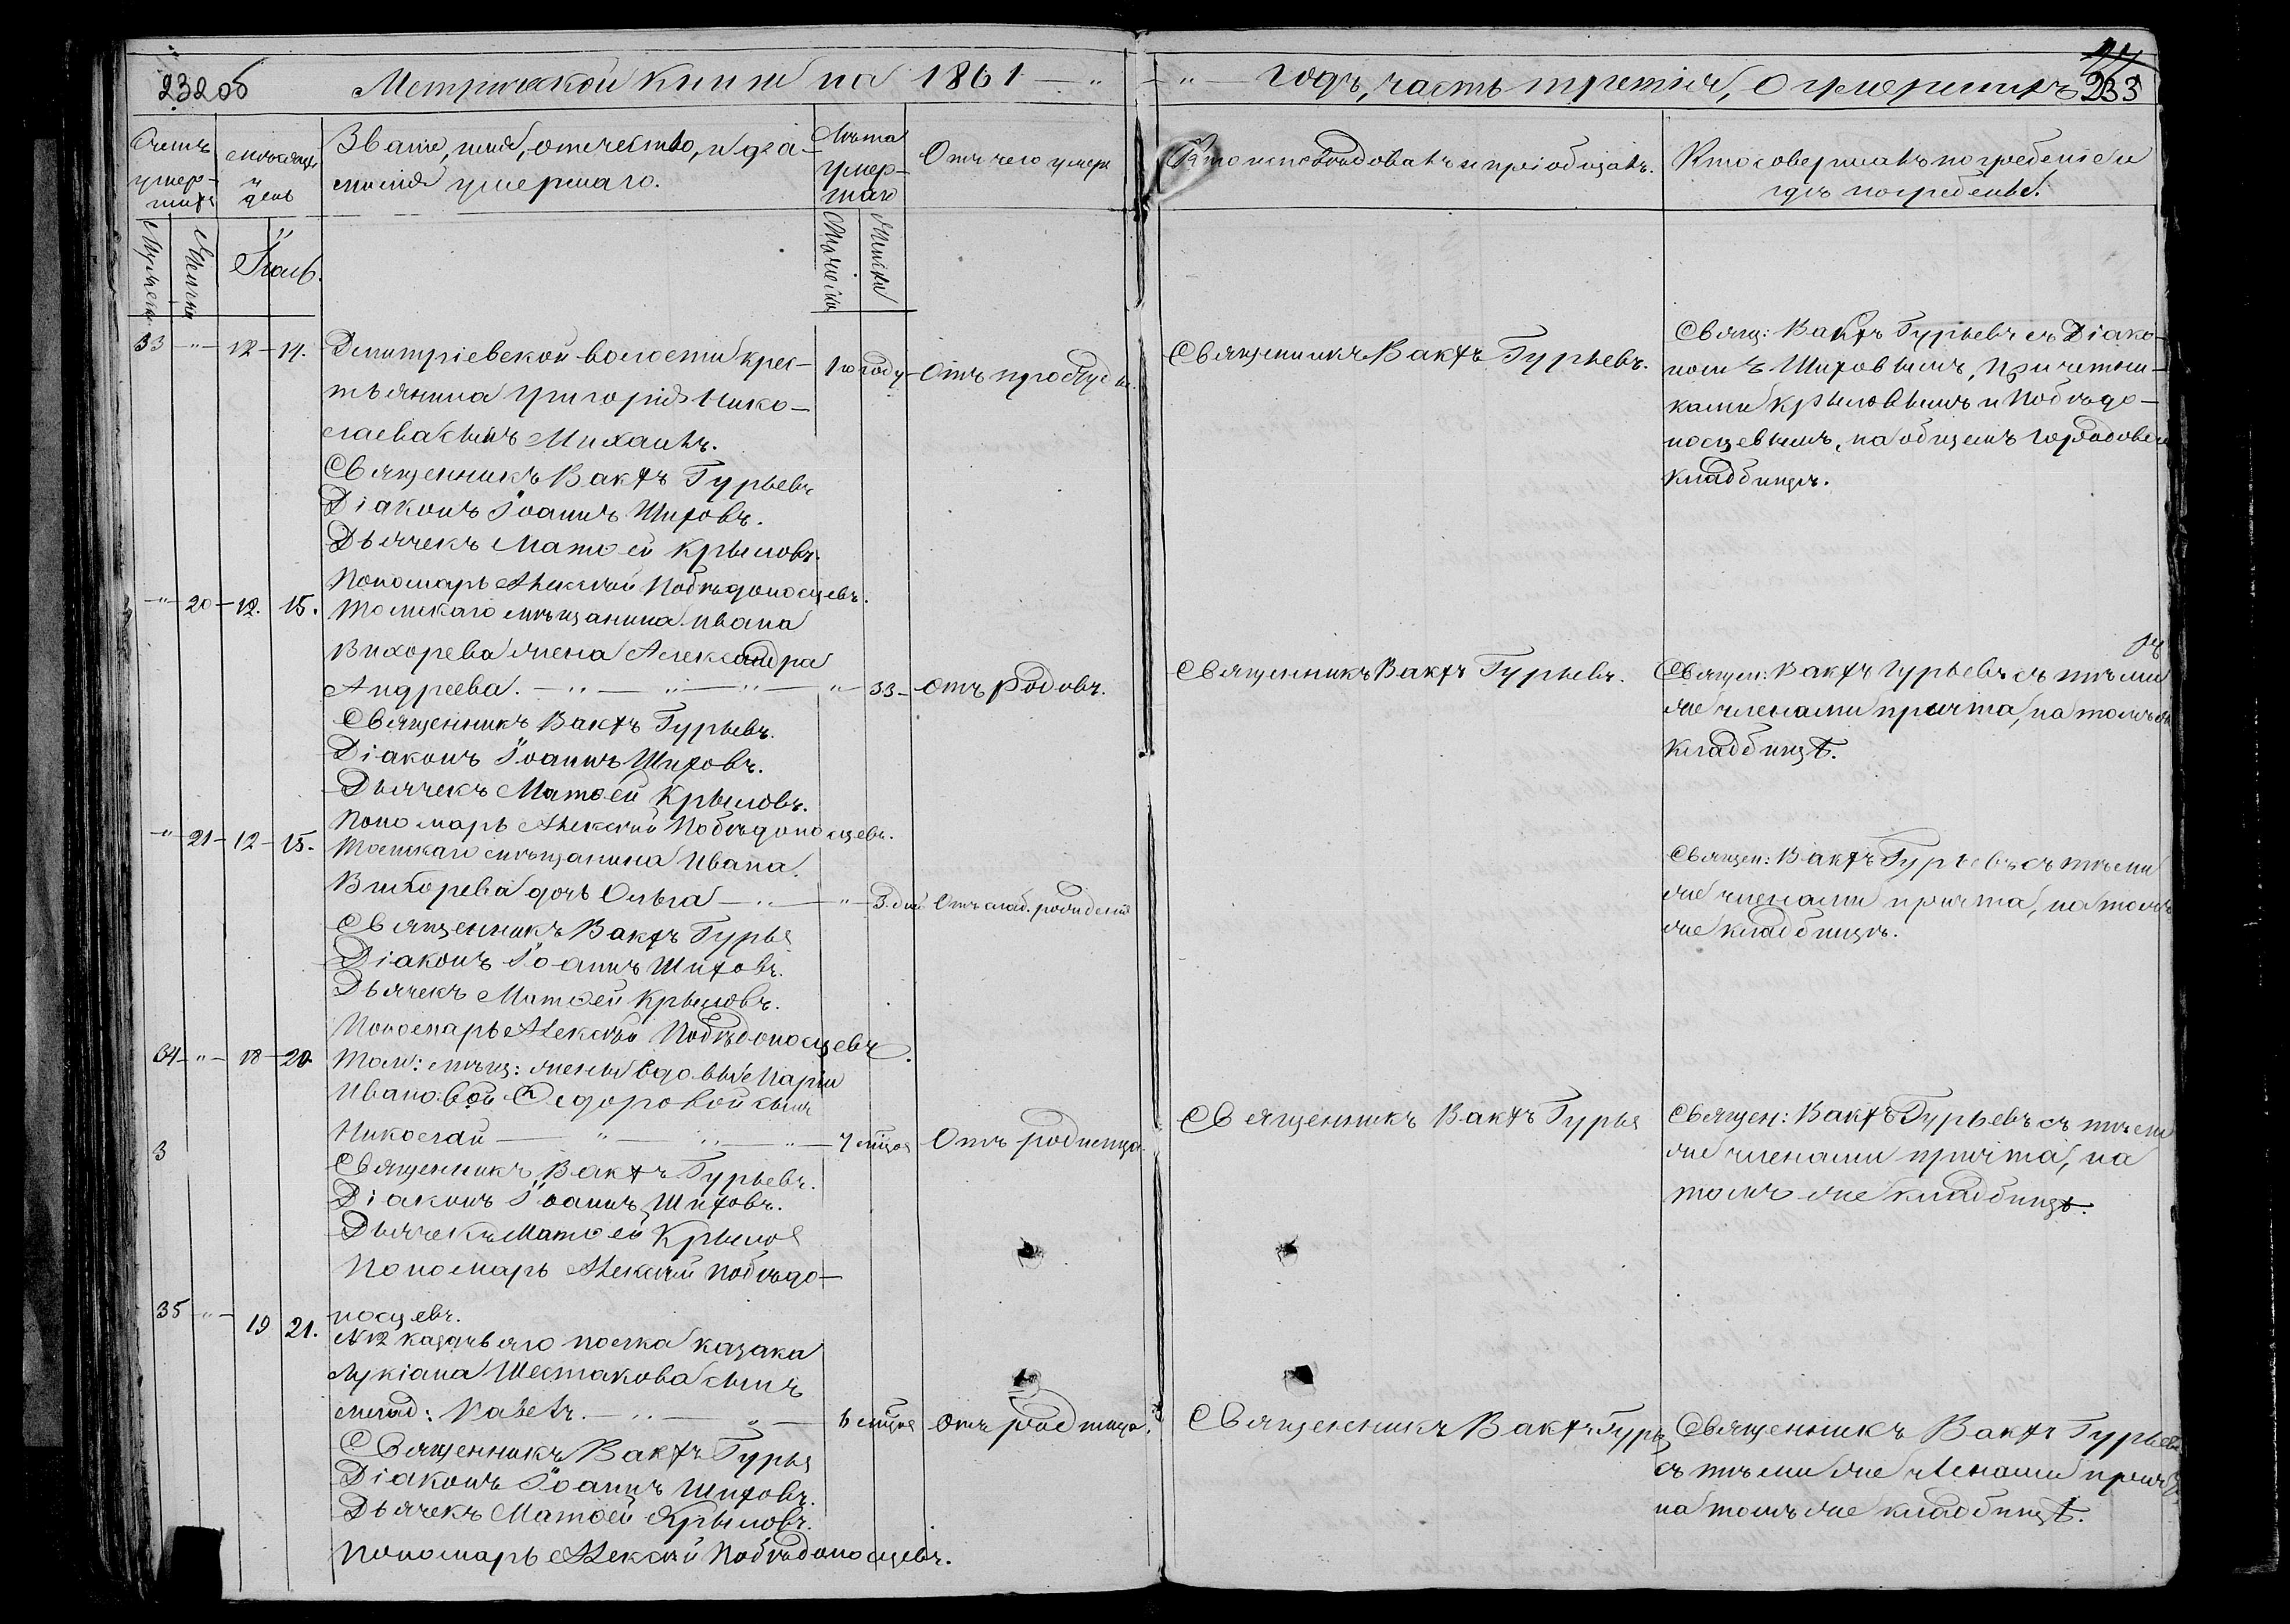 232 об
Метрической книги на 1861
годъ, часть третія, о умершихъ
233
Счетъ умер-шихъ
Мѣсяцъ и день
Званіе, имя, отчество, и фа-
милія умершаго.
Лѣта умер-шаго
Отъ чего умеръ
Кто исповѣдовалъ и пріобщалъ.
Кто совершалъ погребеніе и
гдѣ погребены.
Мужеска
Женска
Мужеска
Женска
33 - " - 12 - 14.
Дмитріевской волости крес-
тьянина Григорія Нико-
лаева сынъ Михаилъ.
1 году - Отъ простуды.
Священникъ Вакхъ Гурьевъ.
Свящ: Вакхъ Гурьевъ съ Діако-
номъ Шиховымъ, Причетни-
ками Крыловымъ и Побѣдо-
носцевымъ, на общемъ городовом
кладбищѣ.
Священникъ Вакхъ Гурьевъ
Діаконъ Іоаннъ Шиховъ.
Дьячекъ Матѳей Крыловъ.
Пономарь Алексѣй Побѣдоносцевъ.
- " - 20 - 12. 15.
Томскаго мѣщанина Ивана
Вихорева жена Александра
Андреева. - " - " - " - " - 33 - Отъ родовъ.
Священникъ Вакхъ Гурьевъ.
Священ: Вакхъ Гурьевъ съ тѣми
же членами причта, на томъ же
кладбищѣ.
Священникъ Вакхъ Гурьевъ.
Діаконъ Іоаннъ Шиховъ.
Дьячекъ Матѳей Крыловъ.
Пономарь Алексѣй Побѣдоносцевъ.
- " - 21 - 12 - 15.
Томскаго мѣщанина Ивана
Вихорева дочь Ольга - " - " - 3. дней Отъ слаб. рожденія
Священ: Вакхъ Гурьевъ съ тѣми
же членами причта, на томъ
же кладбищѣ.
Священникъ Вакхъ Гурье
Діаконъ Іоаннъ Шиховъ.
Дьячекъ Матѳей Крыловъ.
Пономарь Алексѣй Побѣдоносцевъ.
34 - " - 18 - 20.
Том: мѣщ: жены вдовы Маріи
Ивановой Ѳедоровой сынъ
Николай - " - " - " - мѣсяца Отъ родимца.
Священникъ Вакхъ Гурье
Священ: Вакхъ Гурьевъ съ тѣми
же членами причта, на
томъ же кладбищѣ.
3
Священникъ Вакхъ Гурьевъ.
Діаконъ Іоаннъ Шиховъ.
Дьячекъ Матѳей Крылов
Пономарь Алексѣй Побѣдо-
носцевъ.
35 - " - 19 21.
№ 12 казачьяго полка казака
Лукіана Шестакова сынъ
млад: Павелъ. - " - " - мѣсяца Отъ родимца.
Священникъ Вакхъ Гурь
Священникъ Вакхъ Гурьевъ
съ тѣми же членами причта
на томъ же кладбищѣ.
Священникъ Вакхъ Гурье
Діаконъ Іоаннъ Шиховъ.
Дьячекъ Матѳей Крыловъ.
Пономарь Алексѣй Побѣдоносцевъ.